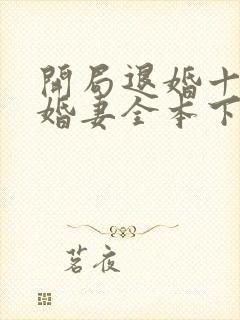 開局退婚十
婚妻全本下
茗夜